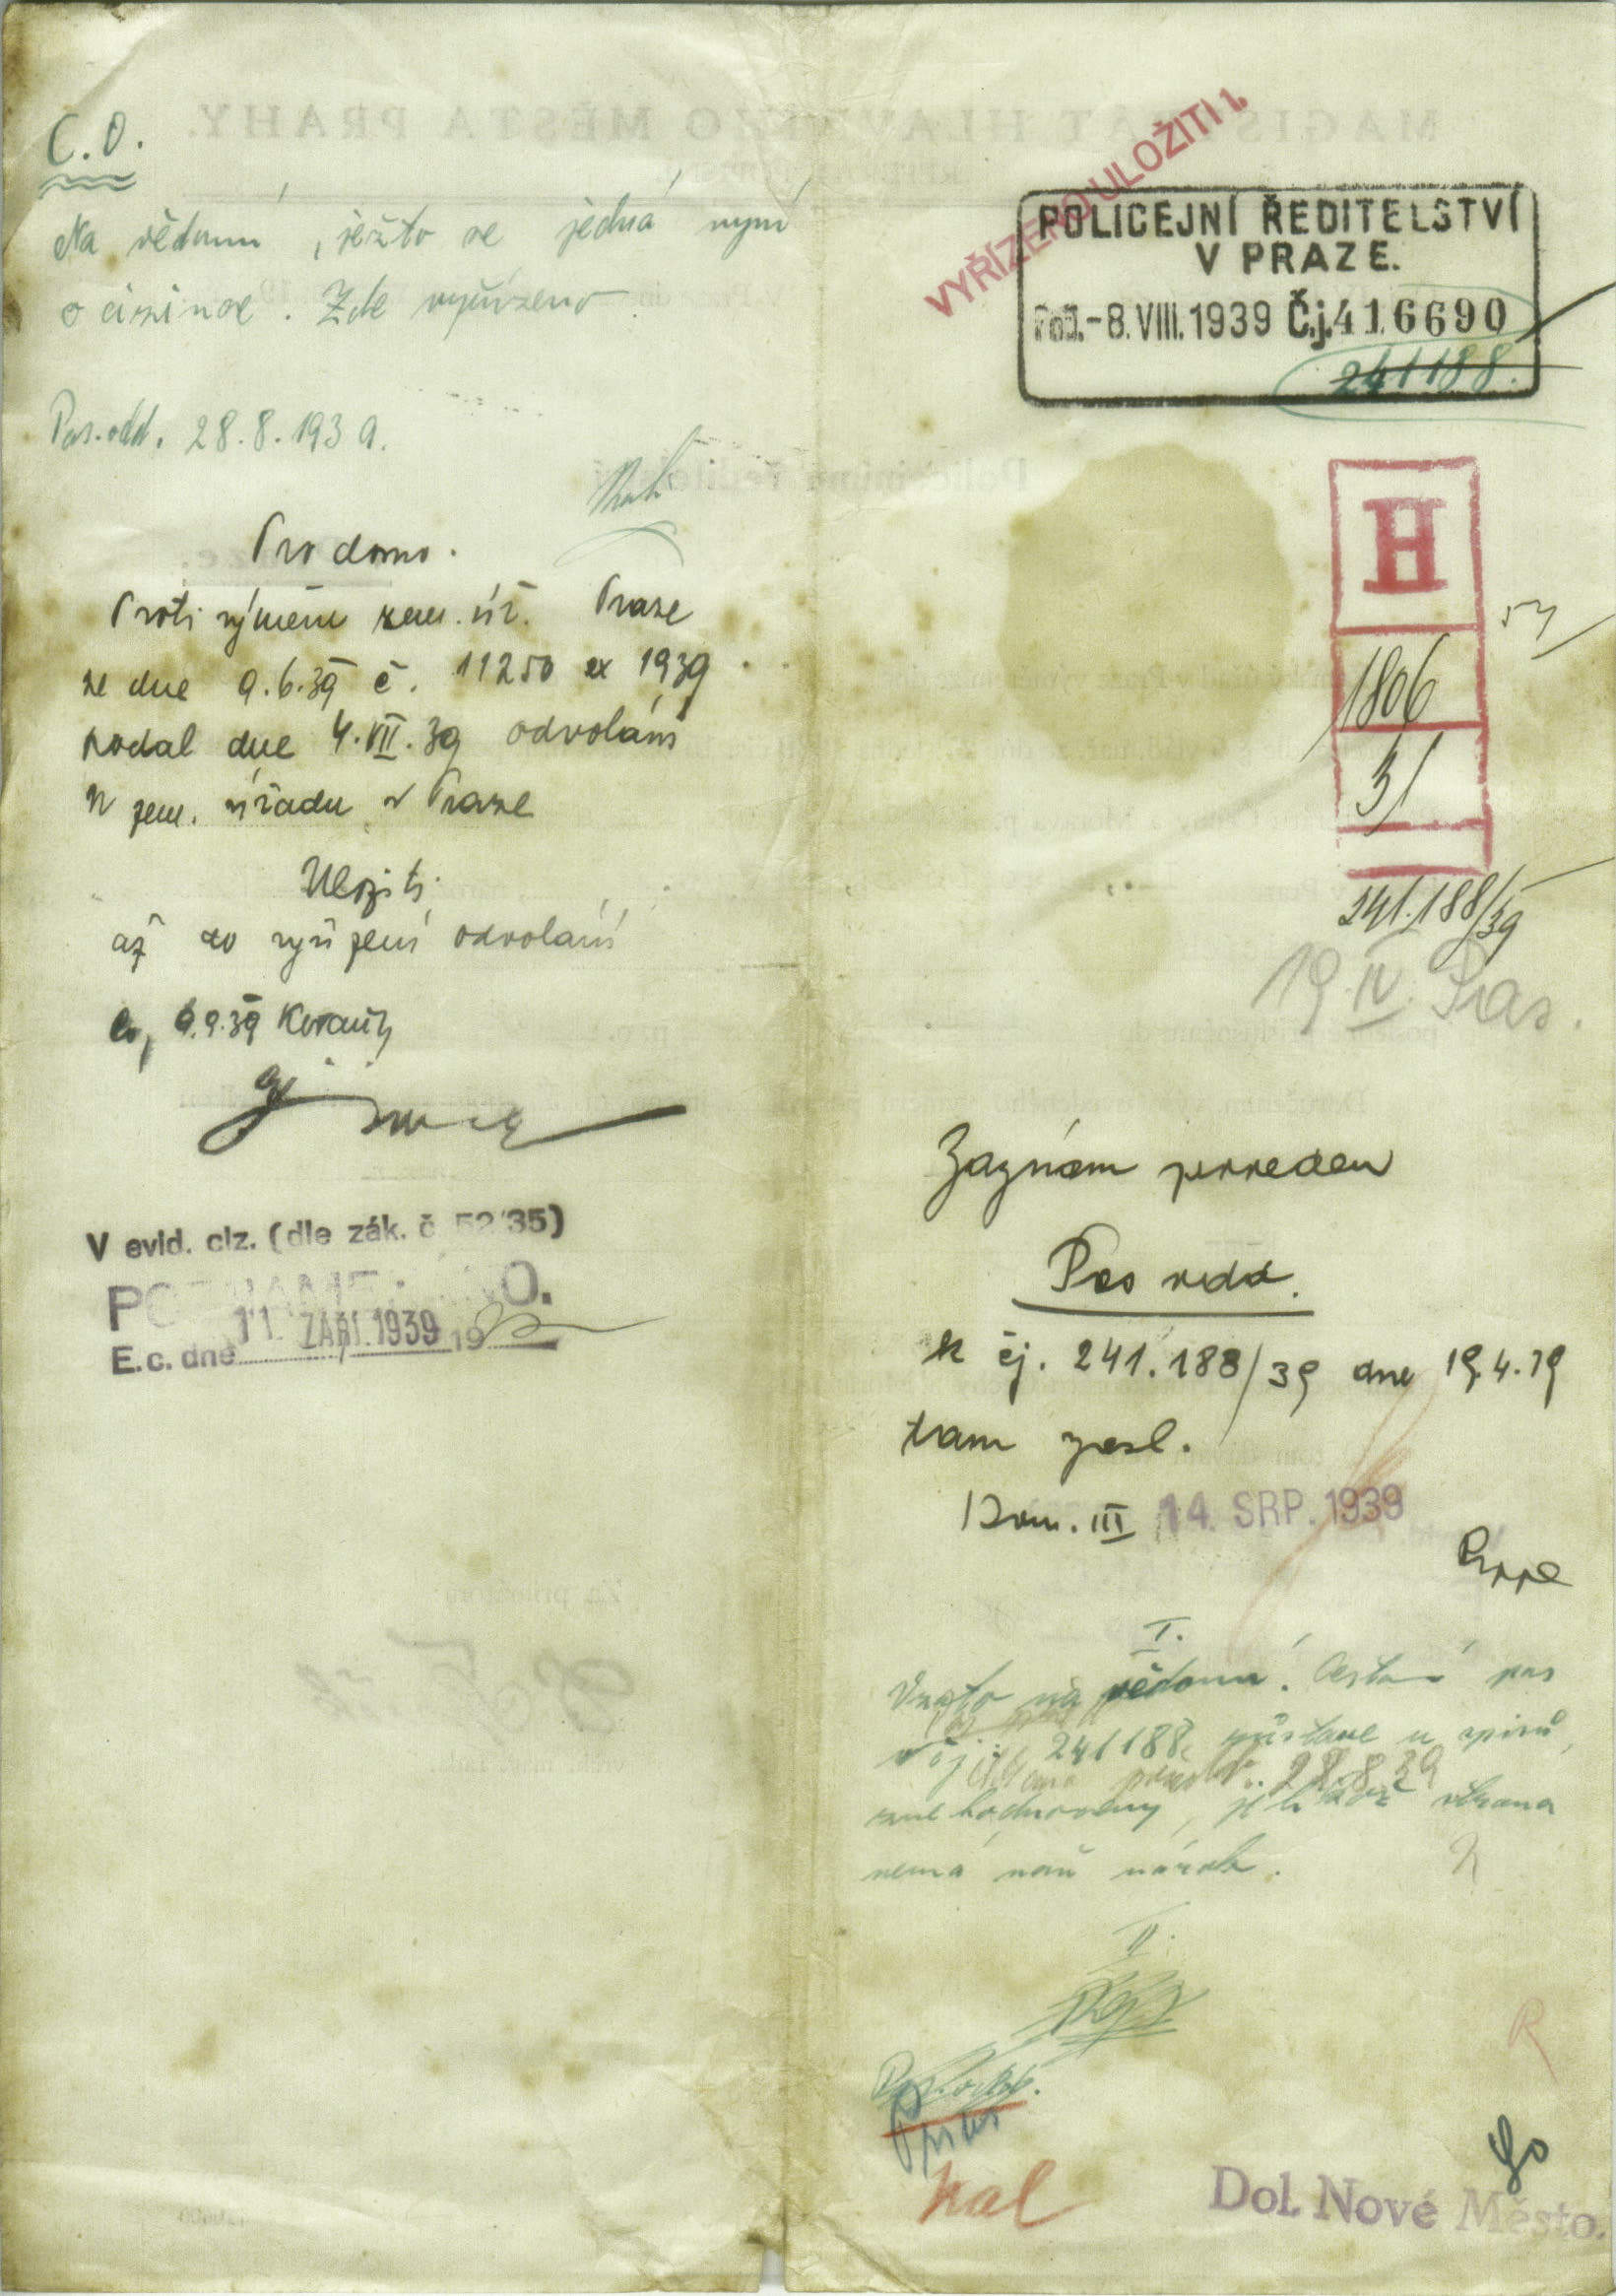 C. O.
Na vědomí, ježto se jedná nyní
o cizince. Zde vyřízeno.
Pas. odd. 28.8.1939.
Pro domo.
Proti výměru zem. úř. Praze
ze dne 9.6.39 č. 11250 ex 1939
podal dne 4.VII.39 odvolání
k zem. úřadu v Praze
Uložiti
až do vyřízení odvolání
V evid. ciz. (dle zák. č 52/35)
11. ZÁŘÍ. 1939 19
E. c. dne
VYŘÍZENO ULOŽITI 1.
POLICEJNÍ ŘEDITELSTVÍ
V PRAZE.
Poš. -8. VIII. 1939 Č.j. 416690
241188.
H
1806
31
241.188/39
19 IV. Pas.
Záznam proveden
Pas odd.
k čj. 241.188/39 dne 19.4.39
tam zasl.
III 14. SRP. 1939
I.
Vzato na vědomí. Cestovní pas
v čj. 241188 zůstane u spisů,
znehodnocený, jelikož strana
28.8.39
nemá naň nárok.
II.
Pas. odd.
kal
Dol. Nové Město.